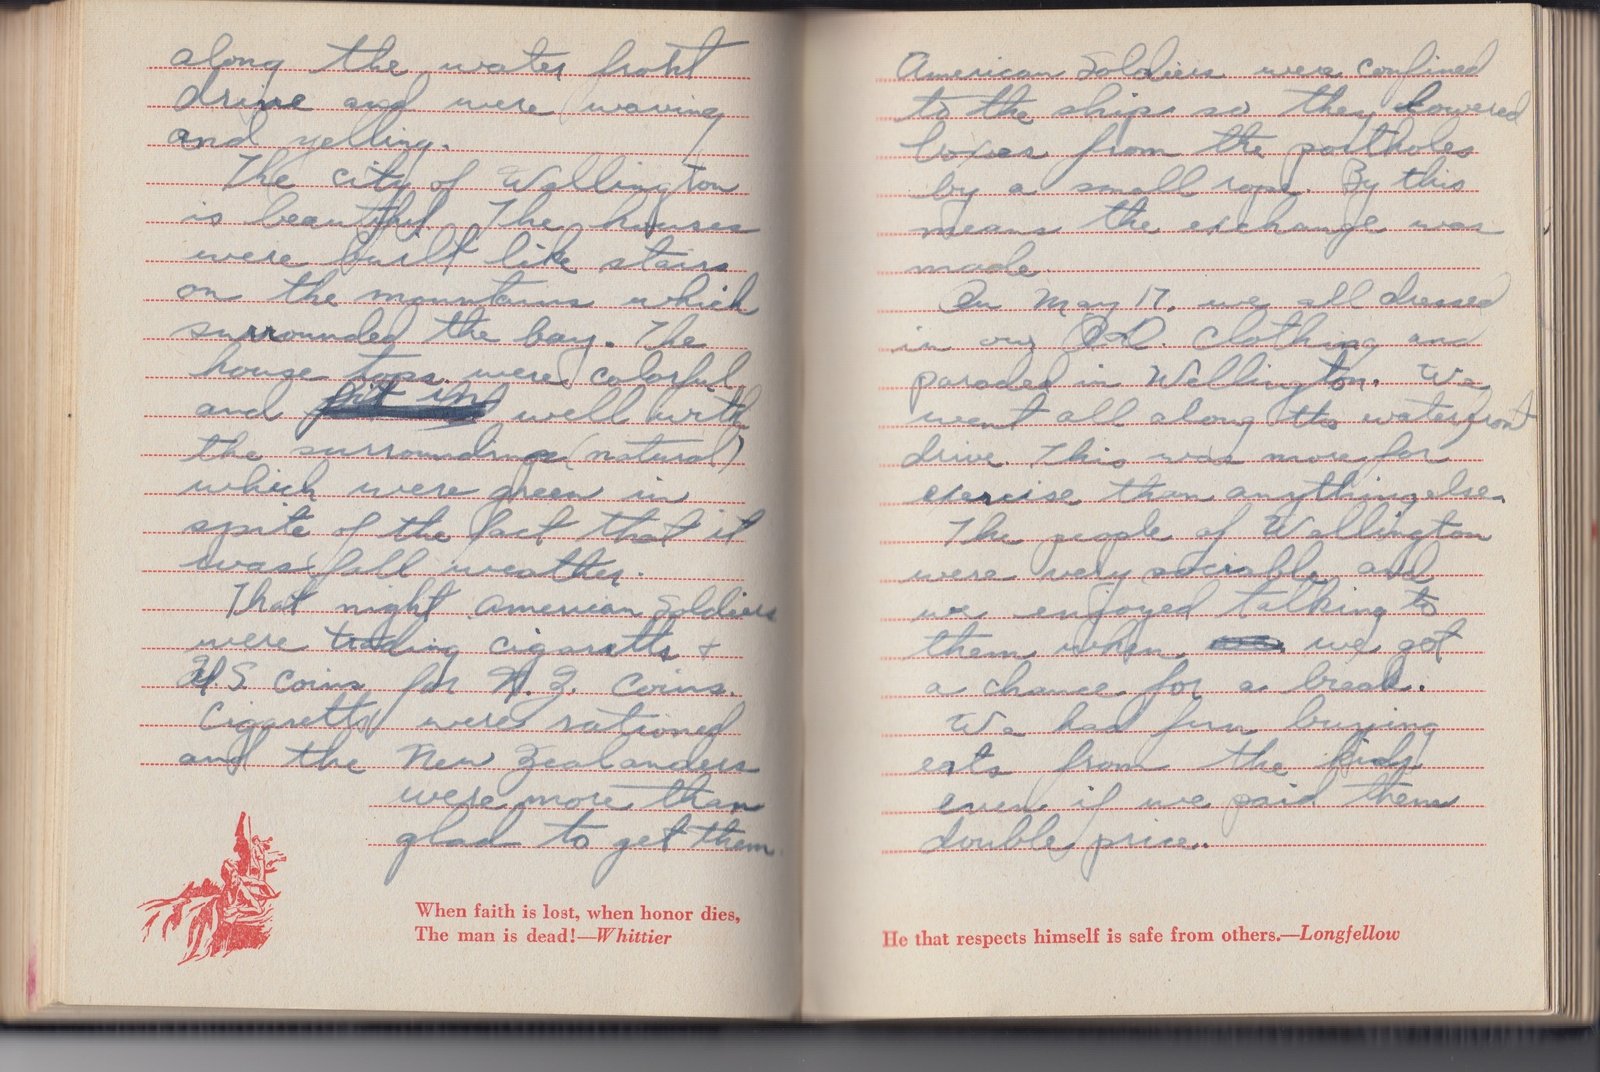 along the water front
drive and were waving
and yelling.
The city of Wellington
is beautiful. The houses
were built like stairs
on the mountains which
surrounded the bay. The
house tops were colorful
and fit in well with
the surroundings (natural)
which were green in
spite of the fact that it
was fall weather.
That night American Soldiers
were trading cigaretts &
U.S. coins for N.Z. coins.
Cigaretts were rationed
and the New Zealanders
were more than
glad to get them.
When faith is lost, when honor dies,
The man is dead!—Whittier
American Soldiers were confined
to the ship so they lowered
boxes from the portholes
by a small rope. By this
means the exchange was
made.
On May 17, we all dressed
in our O.D. clothing and
paraded in Wellington. We
went all along the waterfront
drive. This was more for
exercise than anything else.
The people of Wellington
were very sociable and
we enjoyed talking to
them when we got
a chance for a break.
We had fun buying
eats from the kids
even if we paid them
double price.
He that respects himself is safe from others.—Longfellow